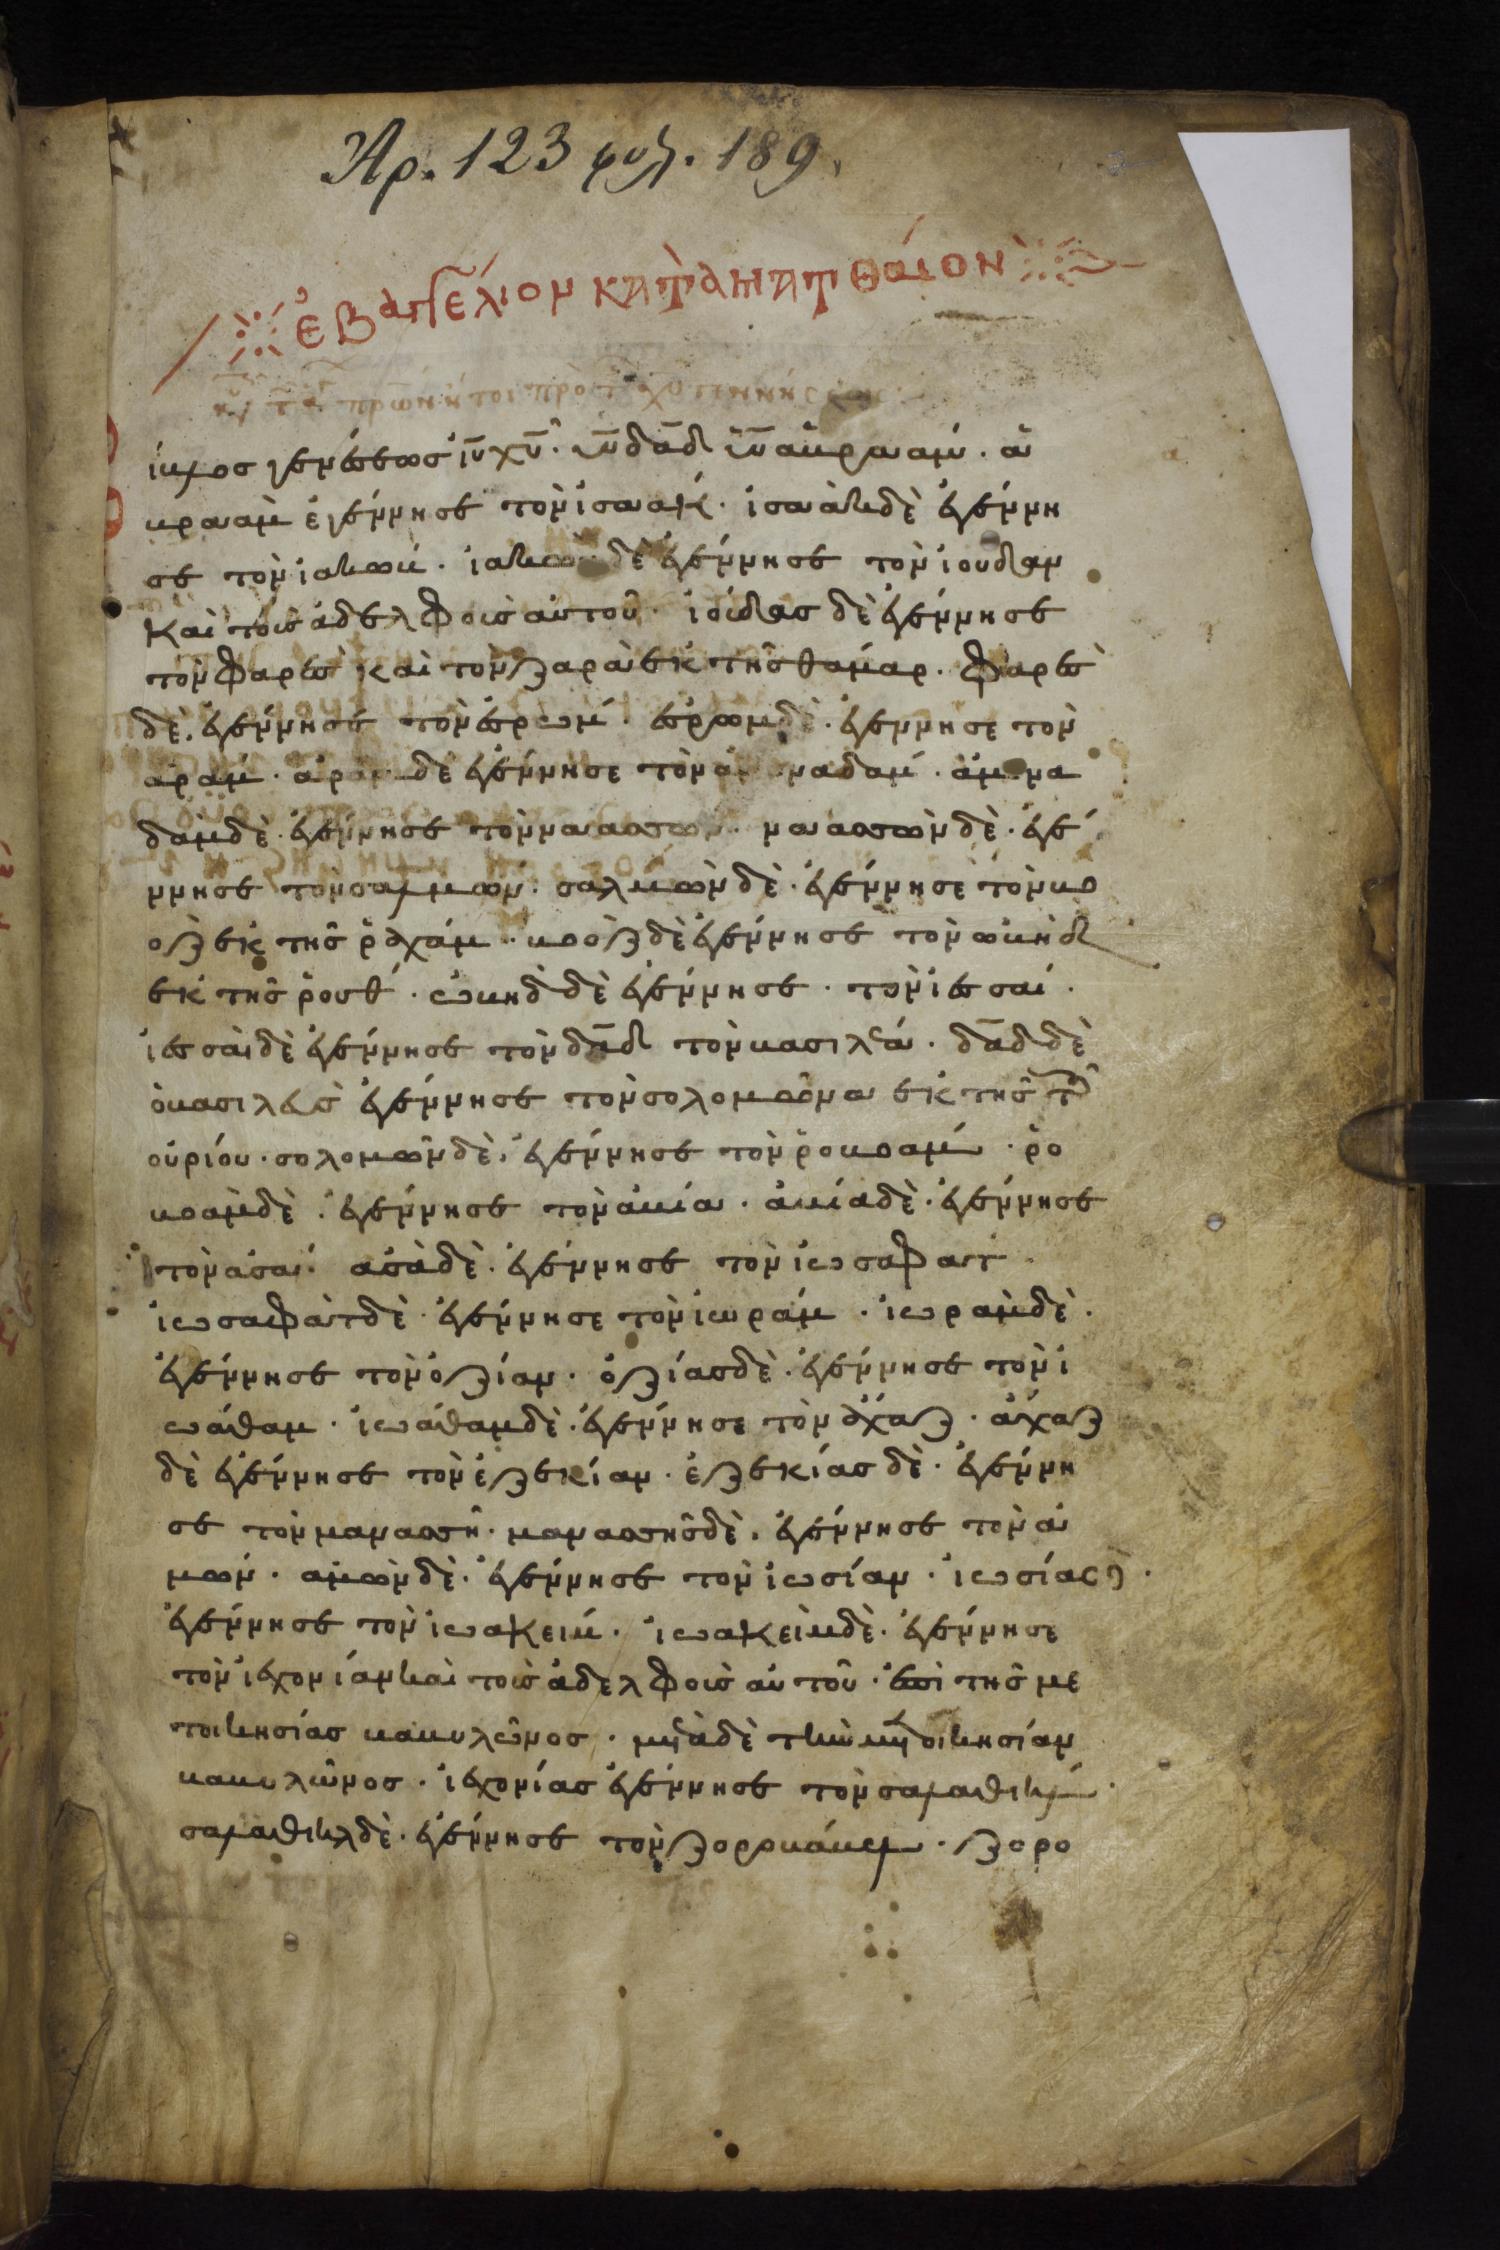 Ἀρ. 123 φύλ. 189.
ἐβαγγέλιον κατὰ ματθαίον
κυ τ πρω των ἤτοι πρὸ τ χυ γεννήσεως
ίβλος γενέσεως ἰυ χυ· ὑυ δαδ ὑυ ἀβρααμ· ἀ
βρααμ ἐγέννησε τὸν ἰσαακ· ἰσαὰκ δὲ ἐγέννη
σε τὸν ἰακωβ· ἰακωβ δὲ ἐγέννησε τὸν ἰουδαν
καὶ τοὺς ἀδελφους αὐτοῦ· ἰούδας δὲ ἐγέννησε
τὸν φαρὲς καὶ τὸν ζαρὰ ἐκ τῆς θαμάρ. φαρὲς
δὲ. ἐγέννησε τὸν ἐσρωμ· ἐσρωμ δὲ· ἐγέννησε τὸν
ἀραμ· ἀραμ δὲ ἐγέννησε τὸν ἀμιναδαμ· ἀμινα
δὰμ δὲ· ἐγέννησε τὸν ναασσων· ναασσὼν δὲ· ἐγέ
ννησε τὸν σαλμων· σαλμὼν δὲ· ἐγέννησε τὸν βο
οζ ἐκ τῆς ῥαχάμ· βοὸζ δὲ ἐγέννησε τὸν ὠβὴδ
ἐκ τῆς ῥουθ· ὠβηδ δὲ ἐγέννησε· τὸν ἰεσσαί·
ἰεσσὰι δὲ ἐγέννησε τὸν δαδ τὸν βασιλέα· δαδ δὲ
ὁ βασιλεὺς ἐγέννησε τὸν σολομῶνα ἐκ τῆς τοῦ
οὐρίου· σολομῶν δὲ· ἐγέννησε τὸν ῥοβοαμ· ῥο
βοαμ δὲ· ἐγέννησε τὸν ἀβία· ἀβία δὲ· ἐγέννησε
τὸν ἀσα· ἀσὰ δὲ· ἐγέννησε τὸν ἰωσαφατ·
ἰωσαφὰτ δὲ· ἐγέννησε τὸν ἰωράμ· ἰωρὰμ δὲ·
ἐγέννησε τὸν ὀζίαν· ὀζίας δὲ· ἐγέννησε τὸν ἰ
ωάθαμ· ἰωάθαμ δὲ· ἐγέννησε τὸν ἄχαζ· ἄχαζ
δὲ ἐγέννησε τὸν ἐζεκίαν· ἐζεκίας δὲ· ἐγέννη
σε τὸν μανασσῆ· μανασσῆς δὲ. ἐγέννησε τὸν ἀ
μων· ἀμὼν δὲ· ἐγέννησε τὸν ἰωσίαν· ἰωσίας δὲ·
ἐγέννησε τὸν ἰωακειμ· ἰωακεὶμ δὲ· ἐγέννησε
τὸν ἰεχονίαν καὶ τοὺς ἀδελφοὺς αὐτοῦ· ἐπὶ τῆς με
τοικησίας βαβυλῶνος· μετὰ δὲ τὴν μετοικησίαν
βαβυλῶνος· ἰεχονίας ἐγέννησε τὸν σαλαθιηλ·
σαλαθιηλ δὲ· ἐγέννησε τὸν ζοροβάβελ· ζορο